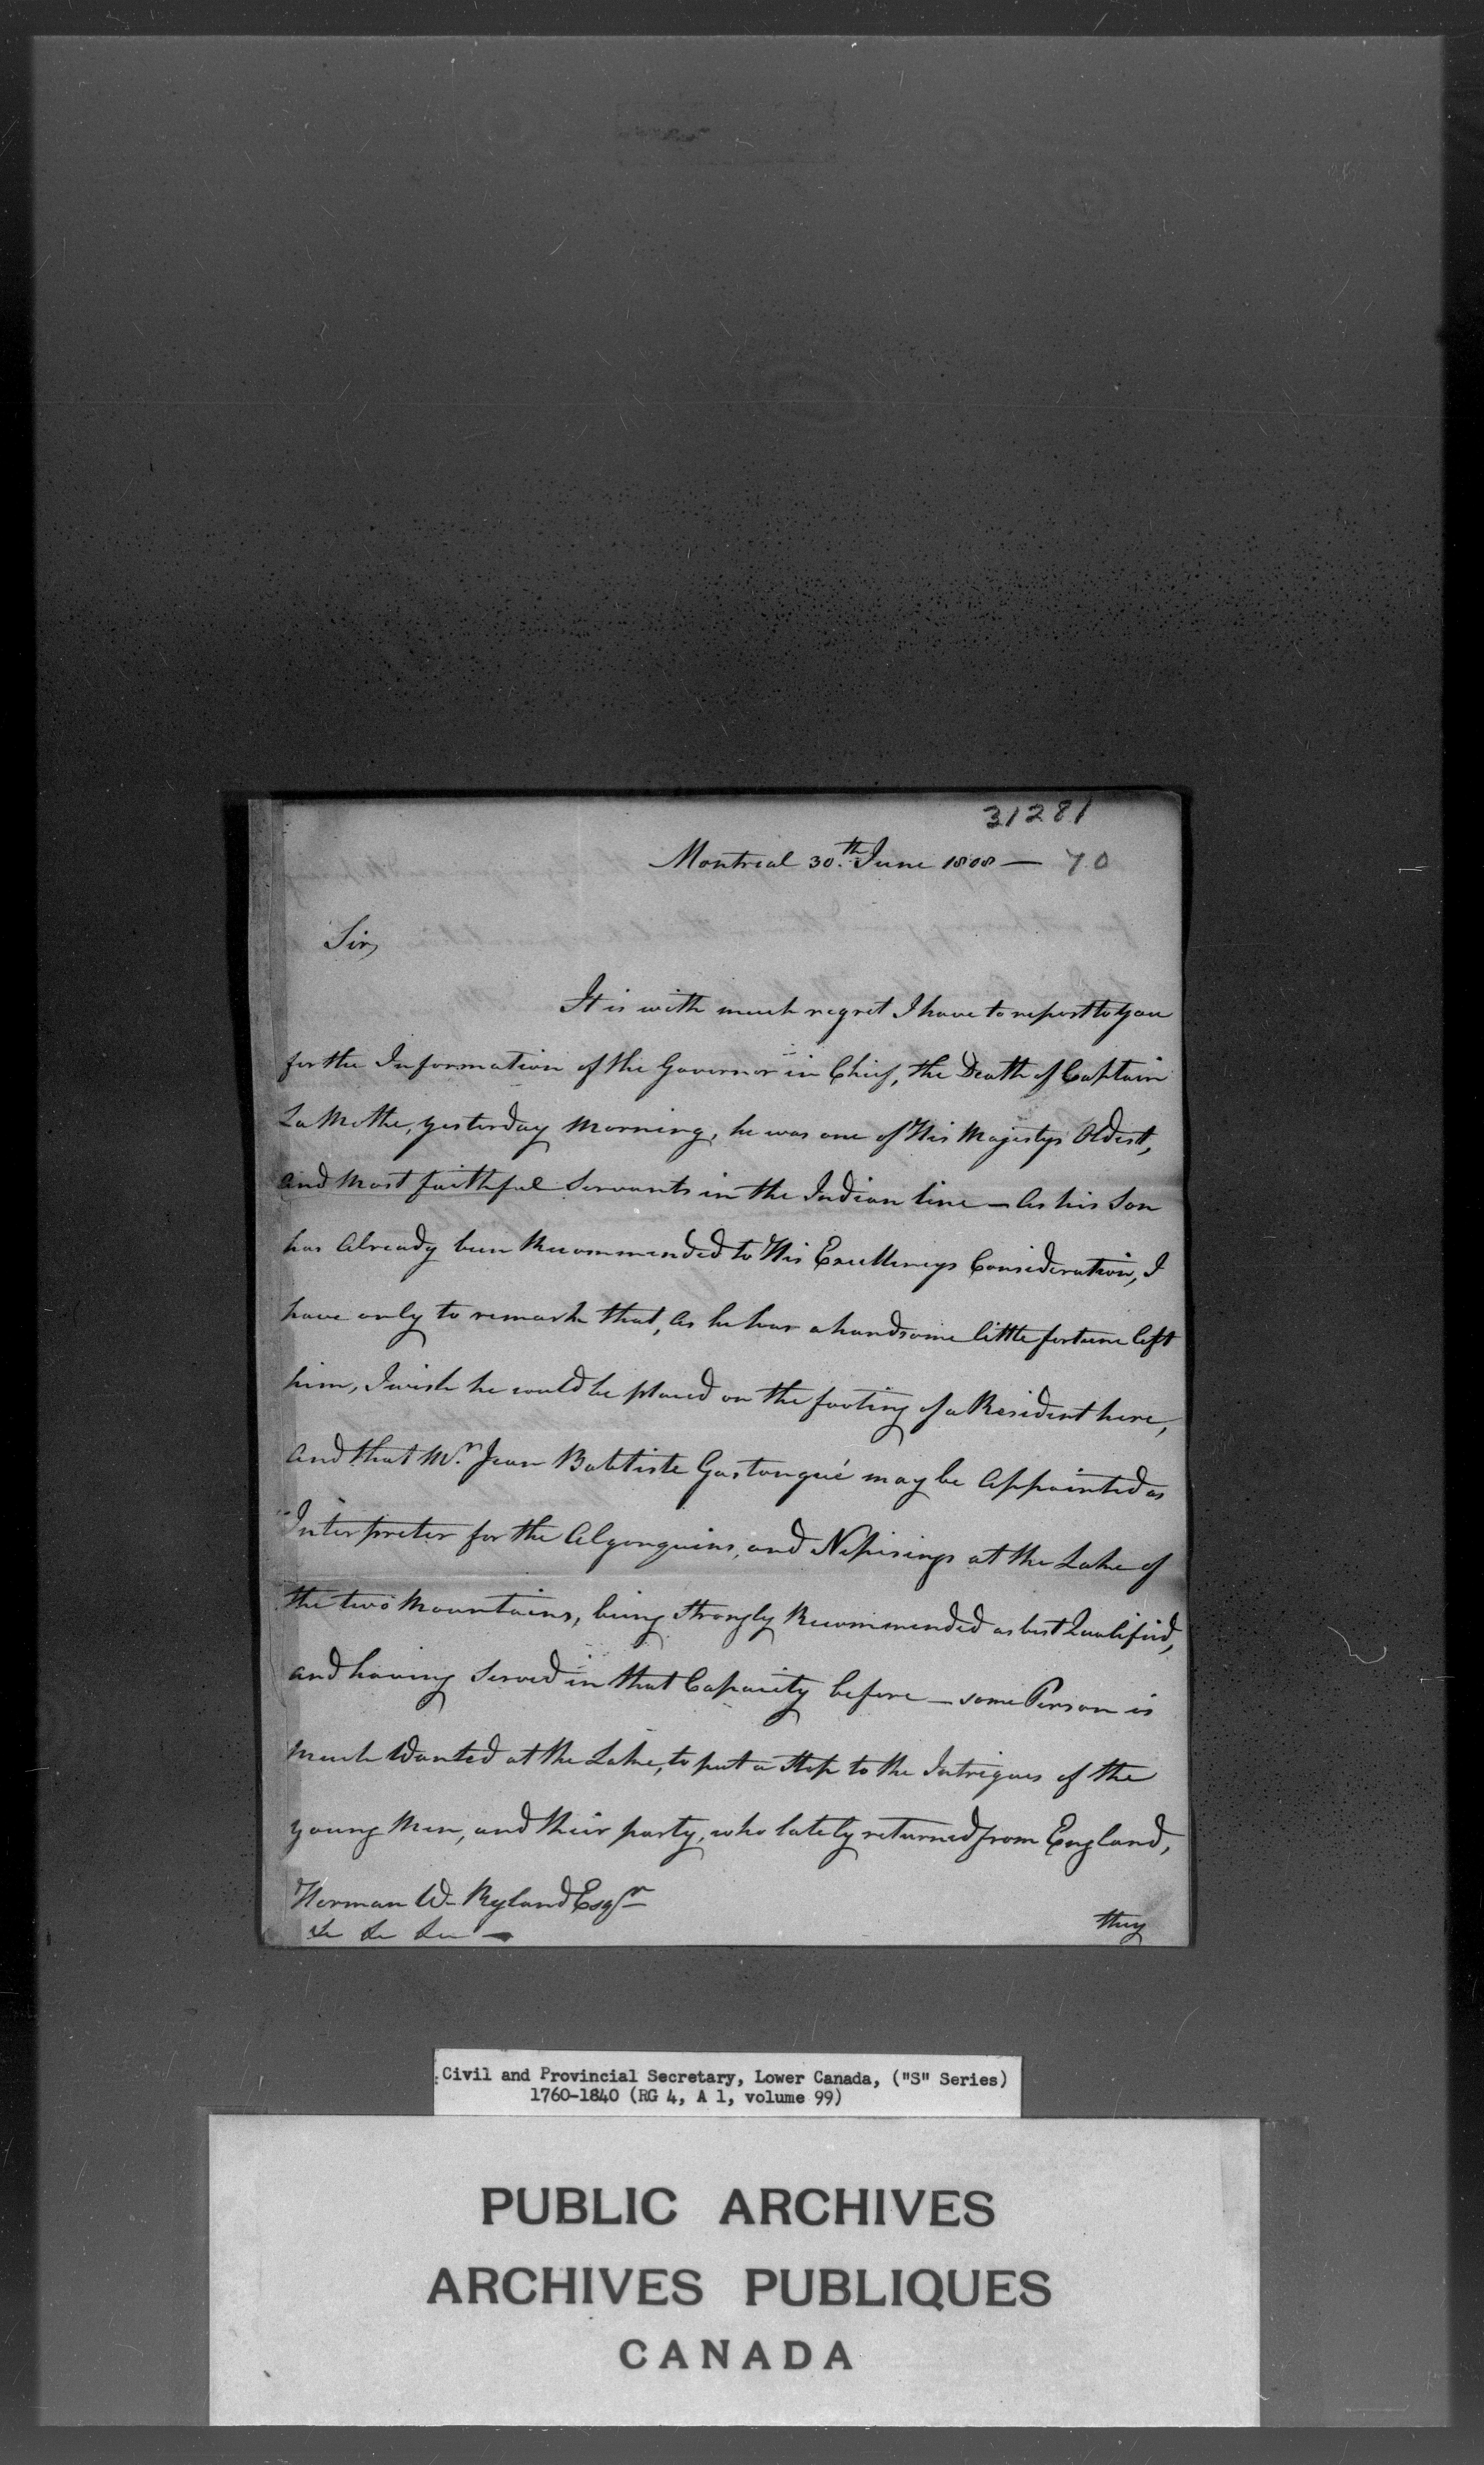 31281
Montreal 30.th June 1808 — 70
Sir,
It is with much regret I have to report to you
for the Information of the Governor in Chief, the Death of Captain
La Mothe, yesterday Morning, he was one of His Majestys Oldest,
and Most faithful Servants in the Indian line — As his Son
has Already been Recommended to His Excellencys Consideration, I
have only to remark that, as he has a handsome little fortune left
him, I wish he could be placed on the footing of a Resident here,
and that Mr. Jean Babtiste Gastongué may be Appointed as
Interpreter for the Algonquins, and Nepisings at the Lake of
the two Mountains, being Strongly Recommended as best Qualified,
and having Served in that Capacity before — some Person is
Much Wanted at the Lake, to put a Stop to the Intrigues of the
young Men, and their party, who lately returned from England,
Herman W. Ryland Esqr
&c &c &c —
they
Civil and Provincial Secretary, Lower Canada, ("S" Series)
1760-1840 (RG 4, A 1, volume 99)
PUBLIC ARCHIVES
ARCHIVES PUBLIQUES
CANADA